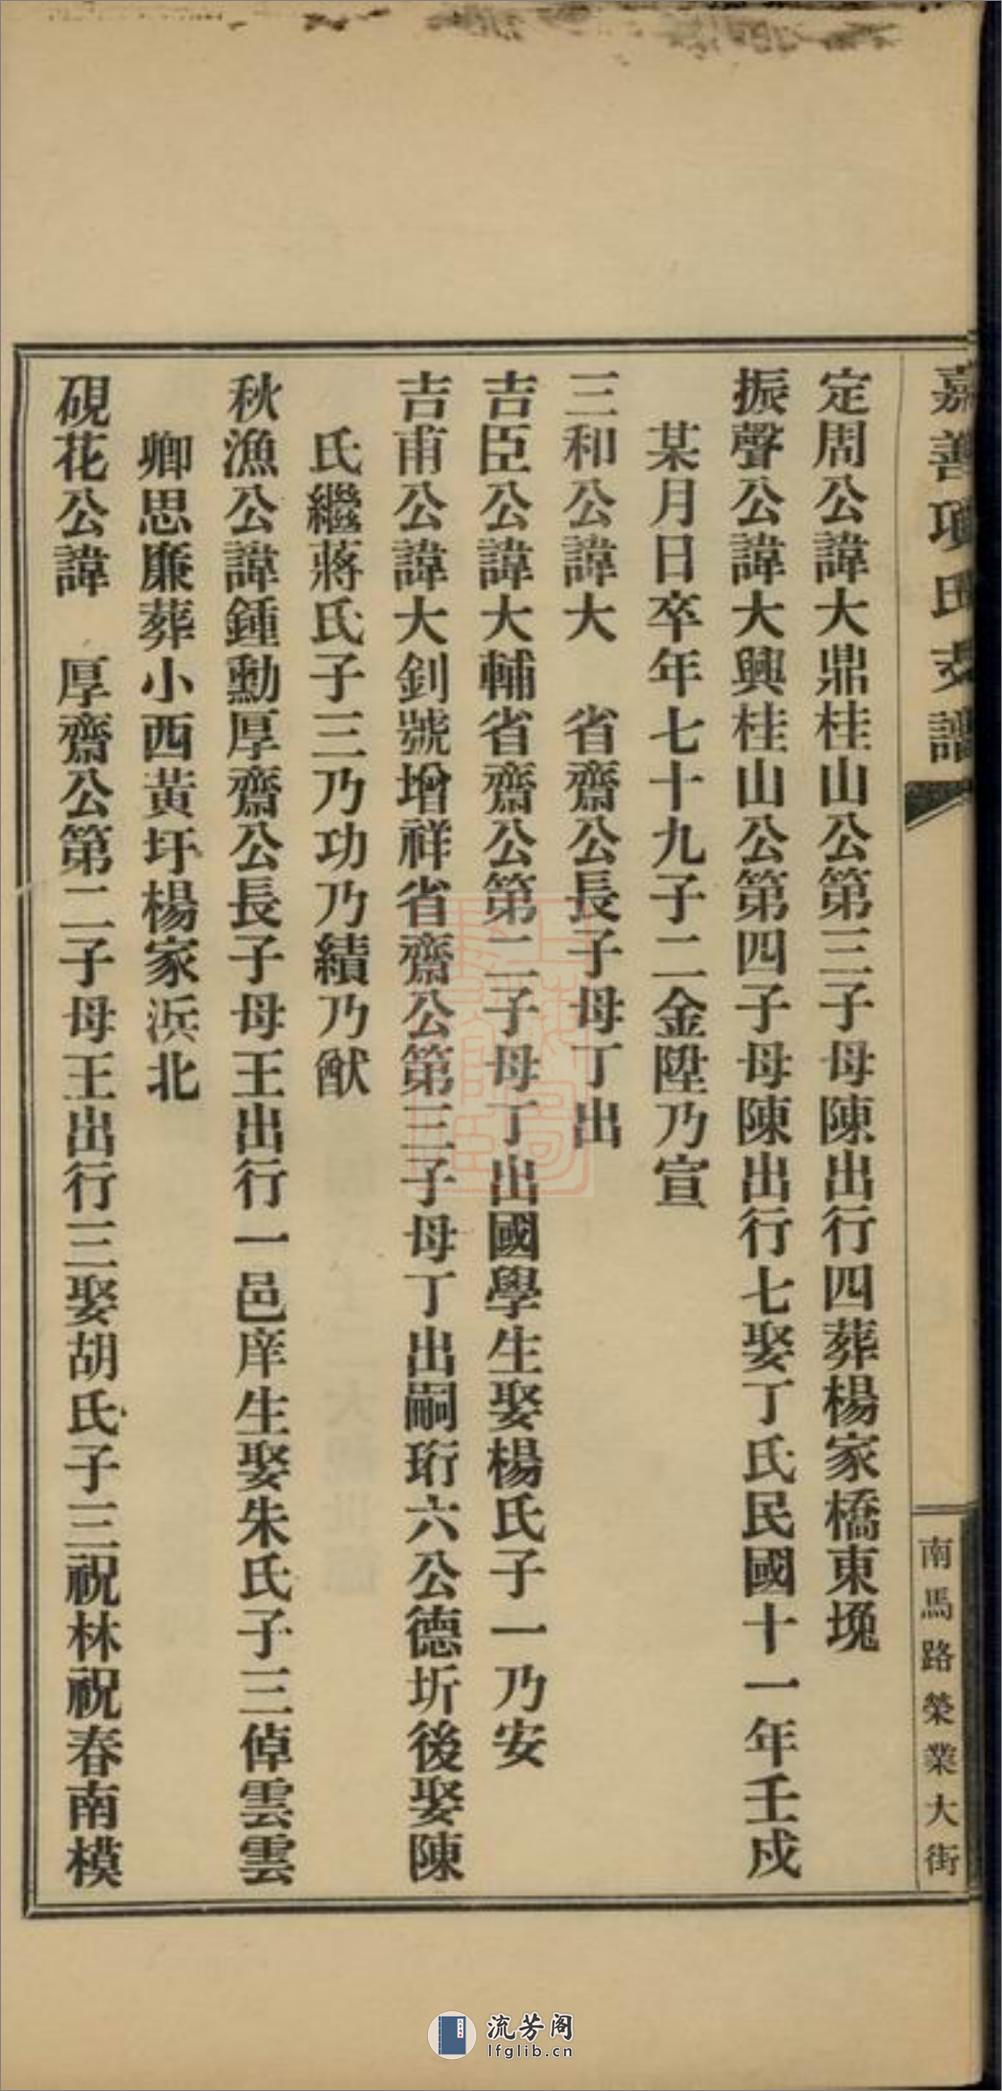 嘉善項氏支譜
南馬路榮業大街
定周公諱大鼎桂山公第三子母陳出行四葬楊家橋東堍
振聲公諱大興桂山公第四子母陳出行七娶丁氏民國十一年壬戌
某月日卒年七十九子二金陞乃宣
三和公諱大　省齋公長子母丁出
吉臣公諱大輔省齋公第二子母丁出國學生娶楊氏子一乃安
吉甫公諱大釗號增祥省齋公第三子母丁出嗣珩六公德圻後娶陳
氏繼蔣氏子三乃功乃績乃猷
秋漁公諱鍾勳厚齋公長子母王出行一邑庠生娶朱氏子三倬雲雲
卿思廉葬小西黃圩楊家浜北
硯花公諱　厚齋公第二子母王出行三娶胡氏子三祝林祝春南模
流芳阁
lfglib.cn